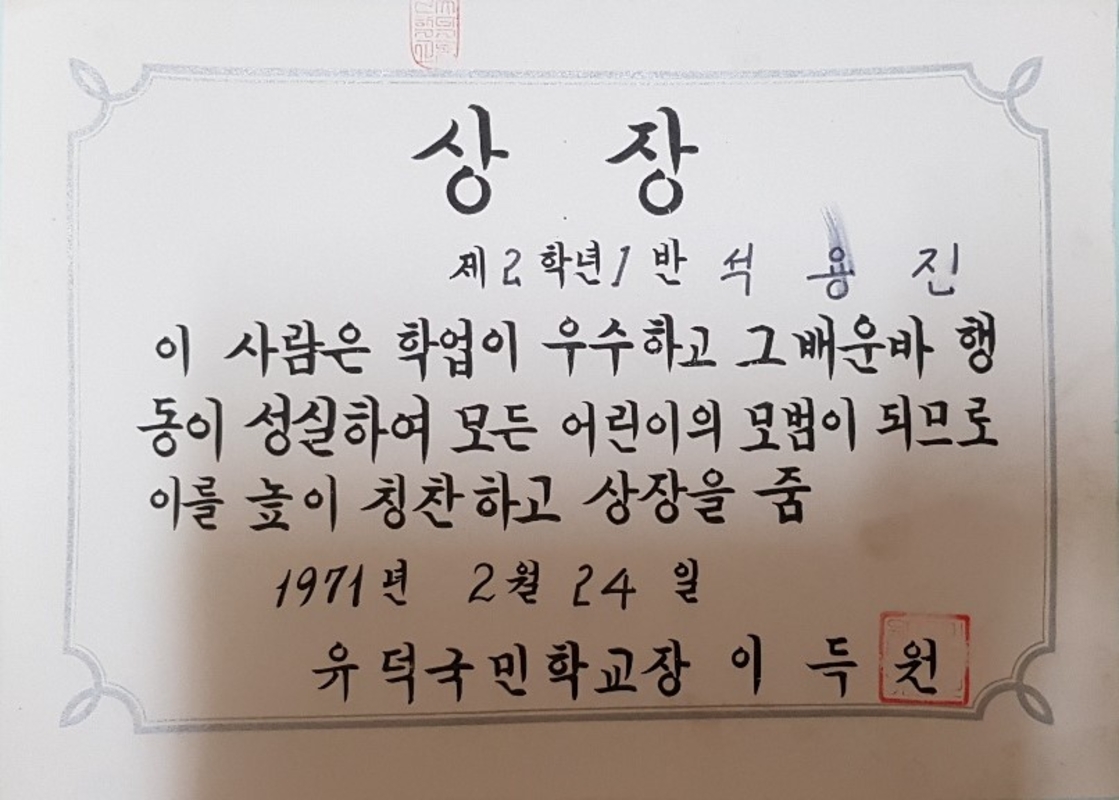 상 장
제 2 학년 1 반 석 용 진
이 사람은 학업이 우수하고 그 배운바 행
동이 성실하여 모든 어린이의 모범이 되므로
이를 높이 칭찬하고 상장을 줌
1971년 2월 24 일
유덕국민학교장 이 득 원